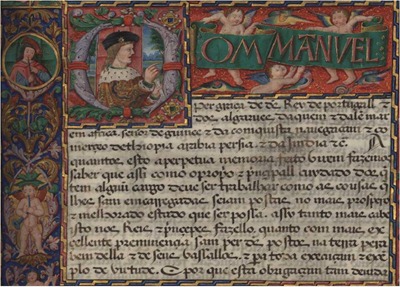 DOM MANVEL:
per graça de ds. Rey de portugall
z dos algarues daquem z dalem mar
em africa. señor de guinee z da comquista nauegaçam z co
mercio dethiopia arabia persia z da Jndia zc. A
quamtos esto a perpetua memoria feito virem fazemos
saber que assi como o propio z prinçipall cuydado dos q̃
tem alguũ cargo deue ser trabalhar como as cousas q̃
lhes sam emcarregadas sejam postas no mais prospero
z melhorado estado que ser possa. assi tanto mais cabe
isto nos Reis z prinçepes fazello. quanto com mais ex
cellente preminençia sam per ds postos na terra pera
bem della z de seus vassallos. z pa todo exerçiçio z exem
plo de virtude. E por que esta obrigaçam tam deuida